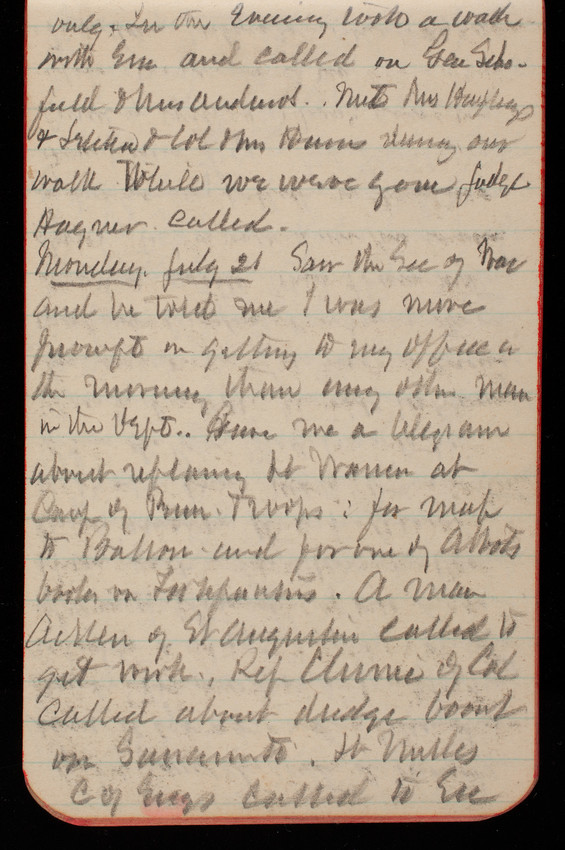 only. In the Evening took a walk
with Em and called on Gen Scho-
field & Mrs. Met Mrs
& & Col & Mrs during our
walk While we were gone Judge
Hagner called.
Monday, July 21 Saw the Sec of War
and he told me I was more
prompt in getting to my office in
the morning than any other man
in the Dept.. Gave me a telegram
about replacing Lt at
Camp of Troops: for map
to and for one of Abbots
books on . A man
of St Augustin called to
get work. Rep Clunie of Cal
called about dredge boat
on Sacramento. Lt
C of Engs called to see